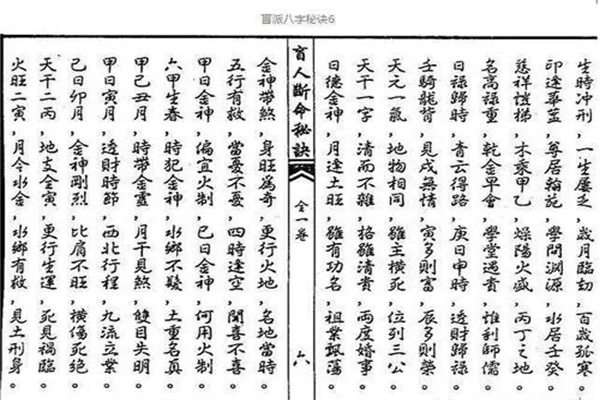 盲派八字秘诀6
生時冲刑，一生屢乏，歲月臨刼，百歲孤寒。
印逢華蓋，尊居翰苑，學問淵源，水居壬癸。
慈祥愷梯，木乘甲乙，燥陽火盛，丙丁之地。
名高祿重，乾金早會，學堂遇貴，惟利師儒。
日祿歸時，青云得路，庚日申時，透財歸祿。
壬騎龍背，見戌無情，寅多則富，辰多則榮。
天元一氣，地物相同，雖主橫死，位列三公。
天干一字，清而不雜，格雖清貴，兩度婚事。
日德金神，月逢土旺，雖有功名，祖業飄蕩。
盲人斷命秘訣
全一卷
六
金神帶煞，身旺為奇，更行火地，名地當時。
五行有救，當憂不憂，四時逢空，聞喜不喜。
甲日金神，偏宜火制，己日金神，何用火制。
六甲生春，時犯金神，水鄉不疑，土重名真。
甲己丑月，時帶金靈，月干見煞，雙目失明。
甲日寅月，透財時節，西北行程，九流立業。
己日卯月，金神剛烈，比肩不旺，橫傷死絕。
天干二丙，地支全寅，更行生運，死見禍臨。
火旺二寅，月令水金，水鄉有救，見土刑身。